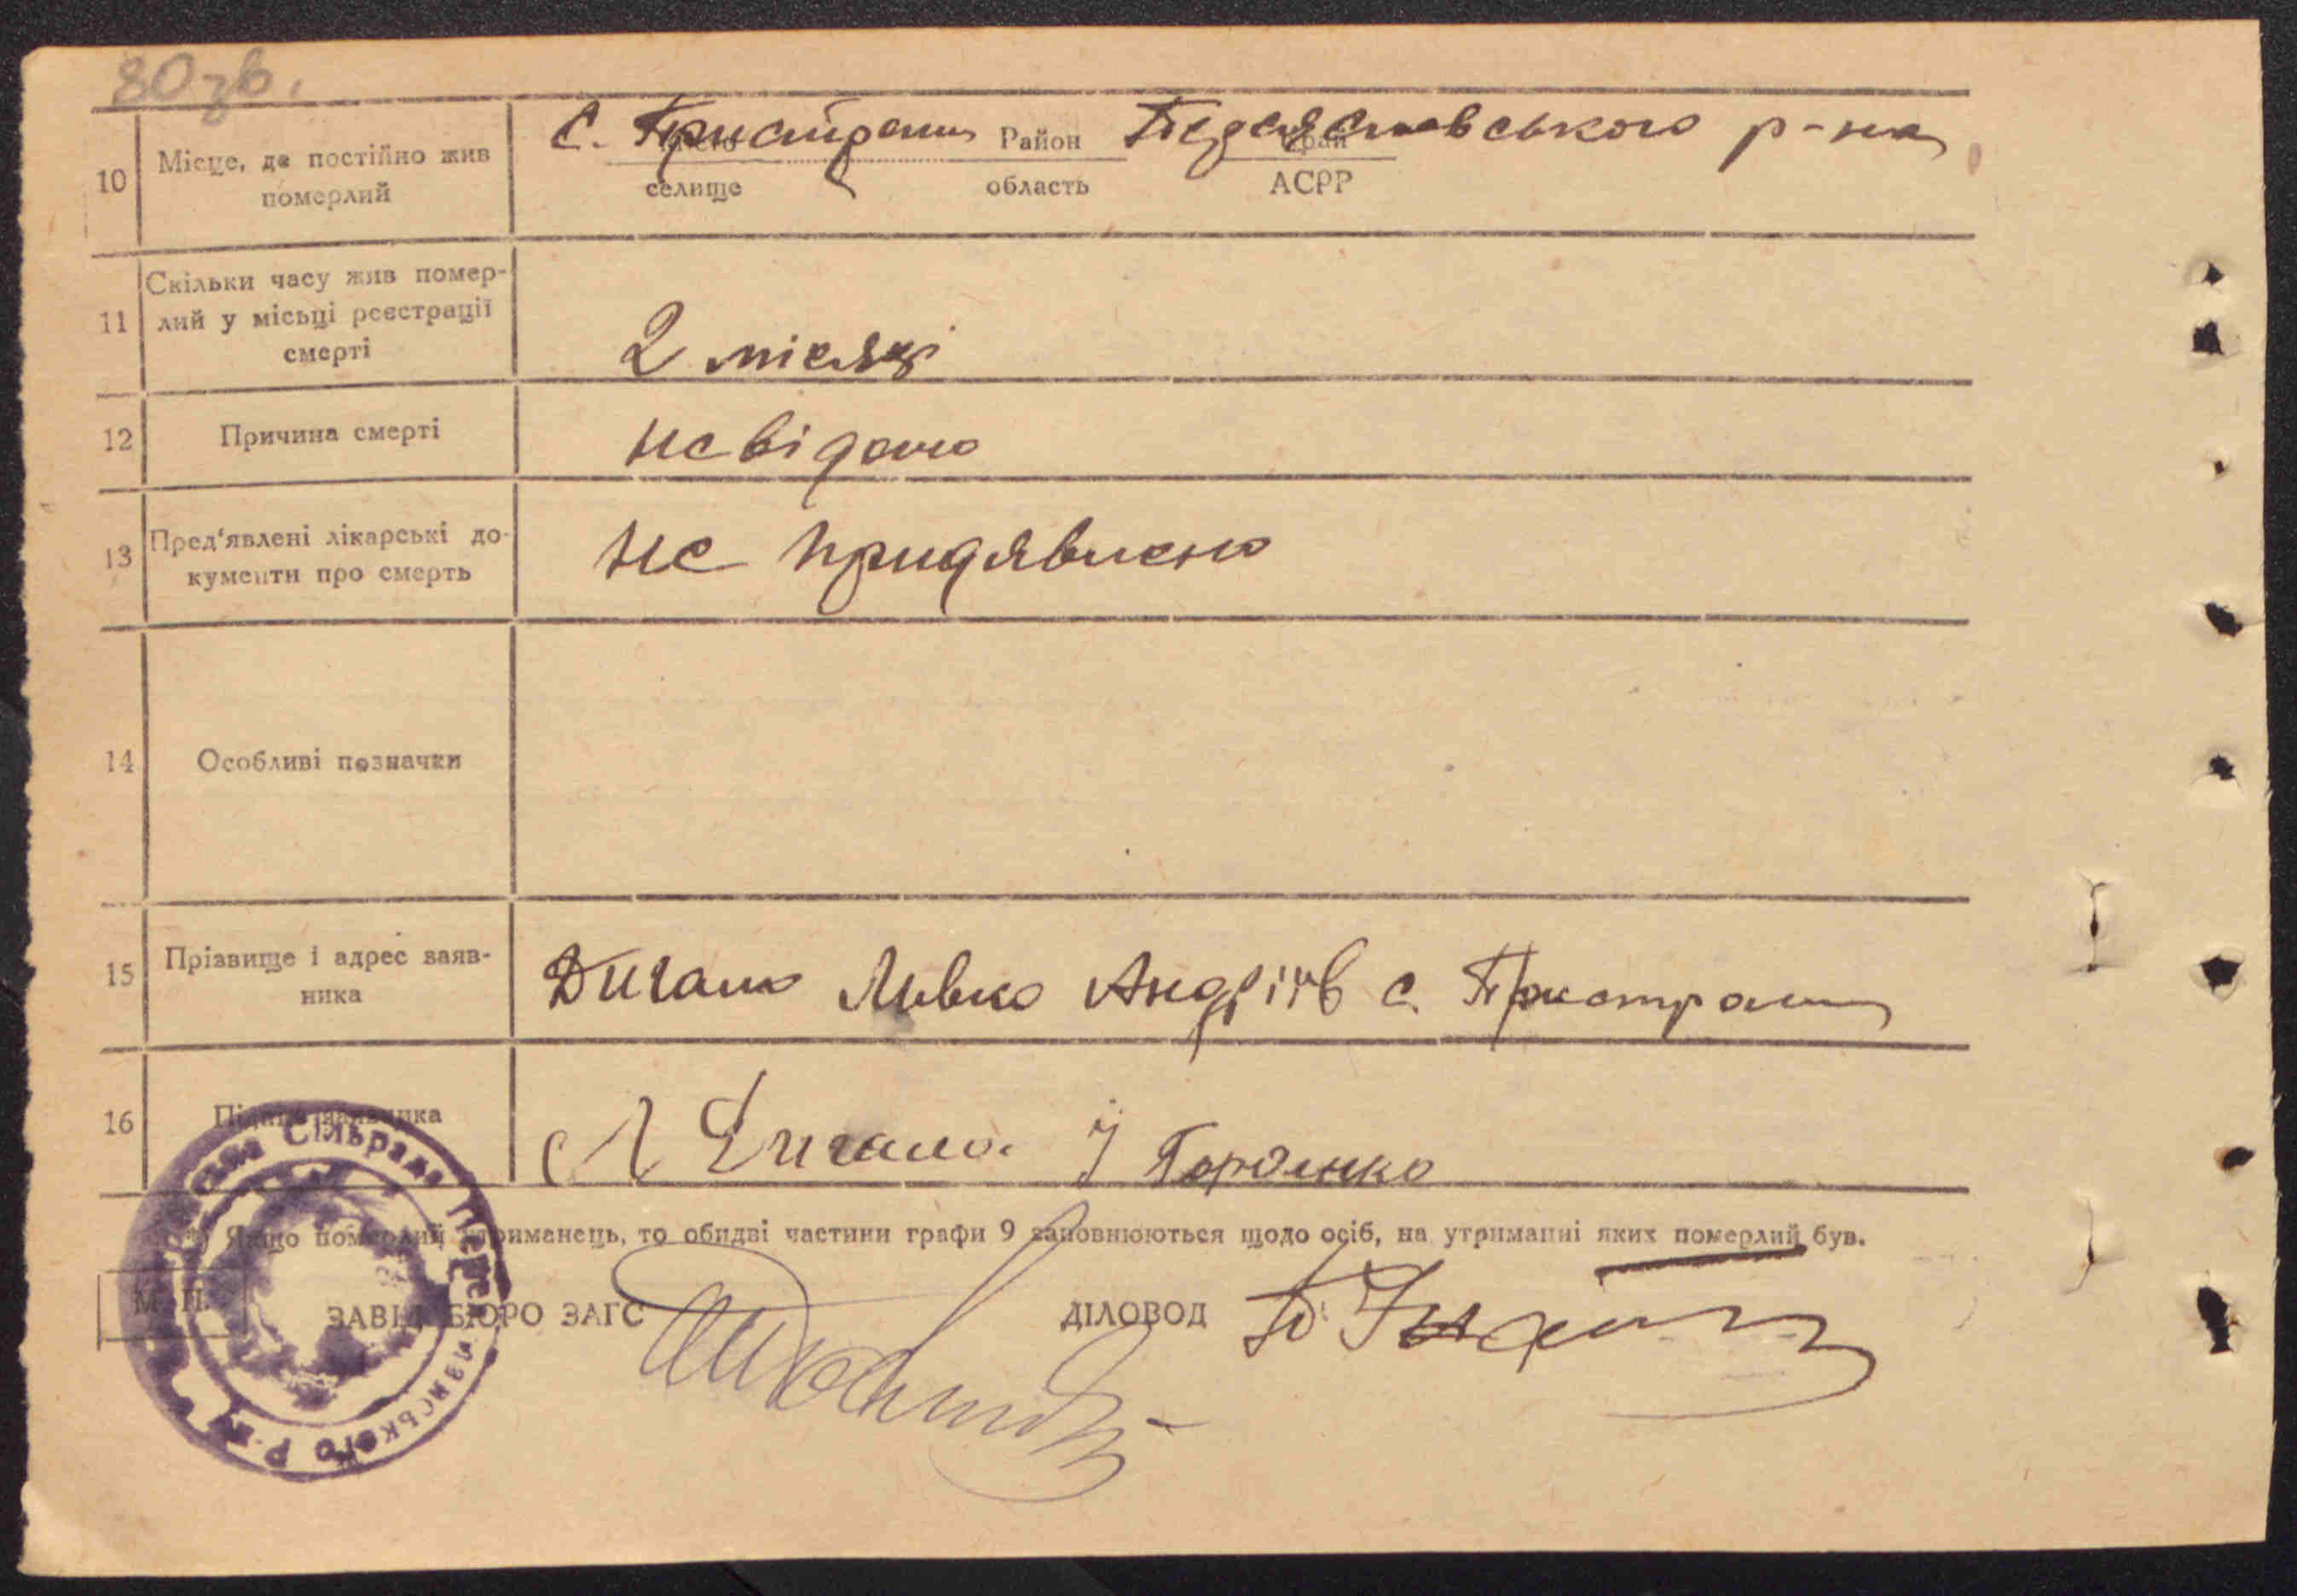 80зв.
с. Пристроми Район Переяславського р-на
місто край
селище область АСРР
10 Місце, де постійно жив
померлий
11 Скільки часу жив помер-
лий у місьці реєстрації
смерті
2 місяці
12 Причина смерті невідомо
13 Пред'явлені лікарські до-
кументи про смерть
не придявлено
14 Особливі позначки
15 Прізвище і адрес заяв-
ника
Дигало Левко Андріїв с. Пристроми
16 Підпис заявника
Л Дигало. Й
Сільрада Переяславського р-ну
*) Якщо померлий утриманець, то обидві частини графи 9 заповнюються щодо осіб, на утриманні яких померлий був.
М. П. ЗАВІД. БЮРО ЗАГС ДІЛОВОД